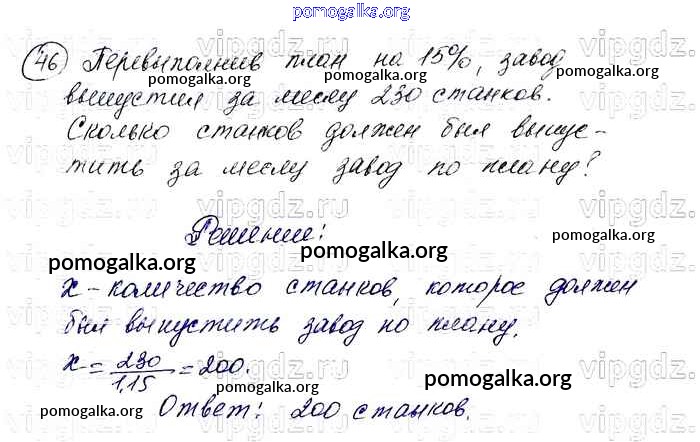 pomogalka.org
46 Перевыполнив план на 15%, завод
pomogalka.org pomogalka.org
выпустил за месяц 230 станков.
Сколько станков должен был выпус-
pomogalka.org pomogalka.org
тить за месяц завод по плану?
vipgdz.ru vipgdz.ru
Решение:
pomogalka.org
pomogalka.org pomogalka.org
x – количество станков, которое должен
был выпустить завод по плану.
x = 230/1,15 = 200.
pomogalka.org
Ответ: 200 станков.
pomogalka.org pomogalka.org